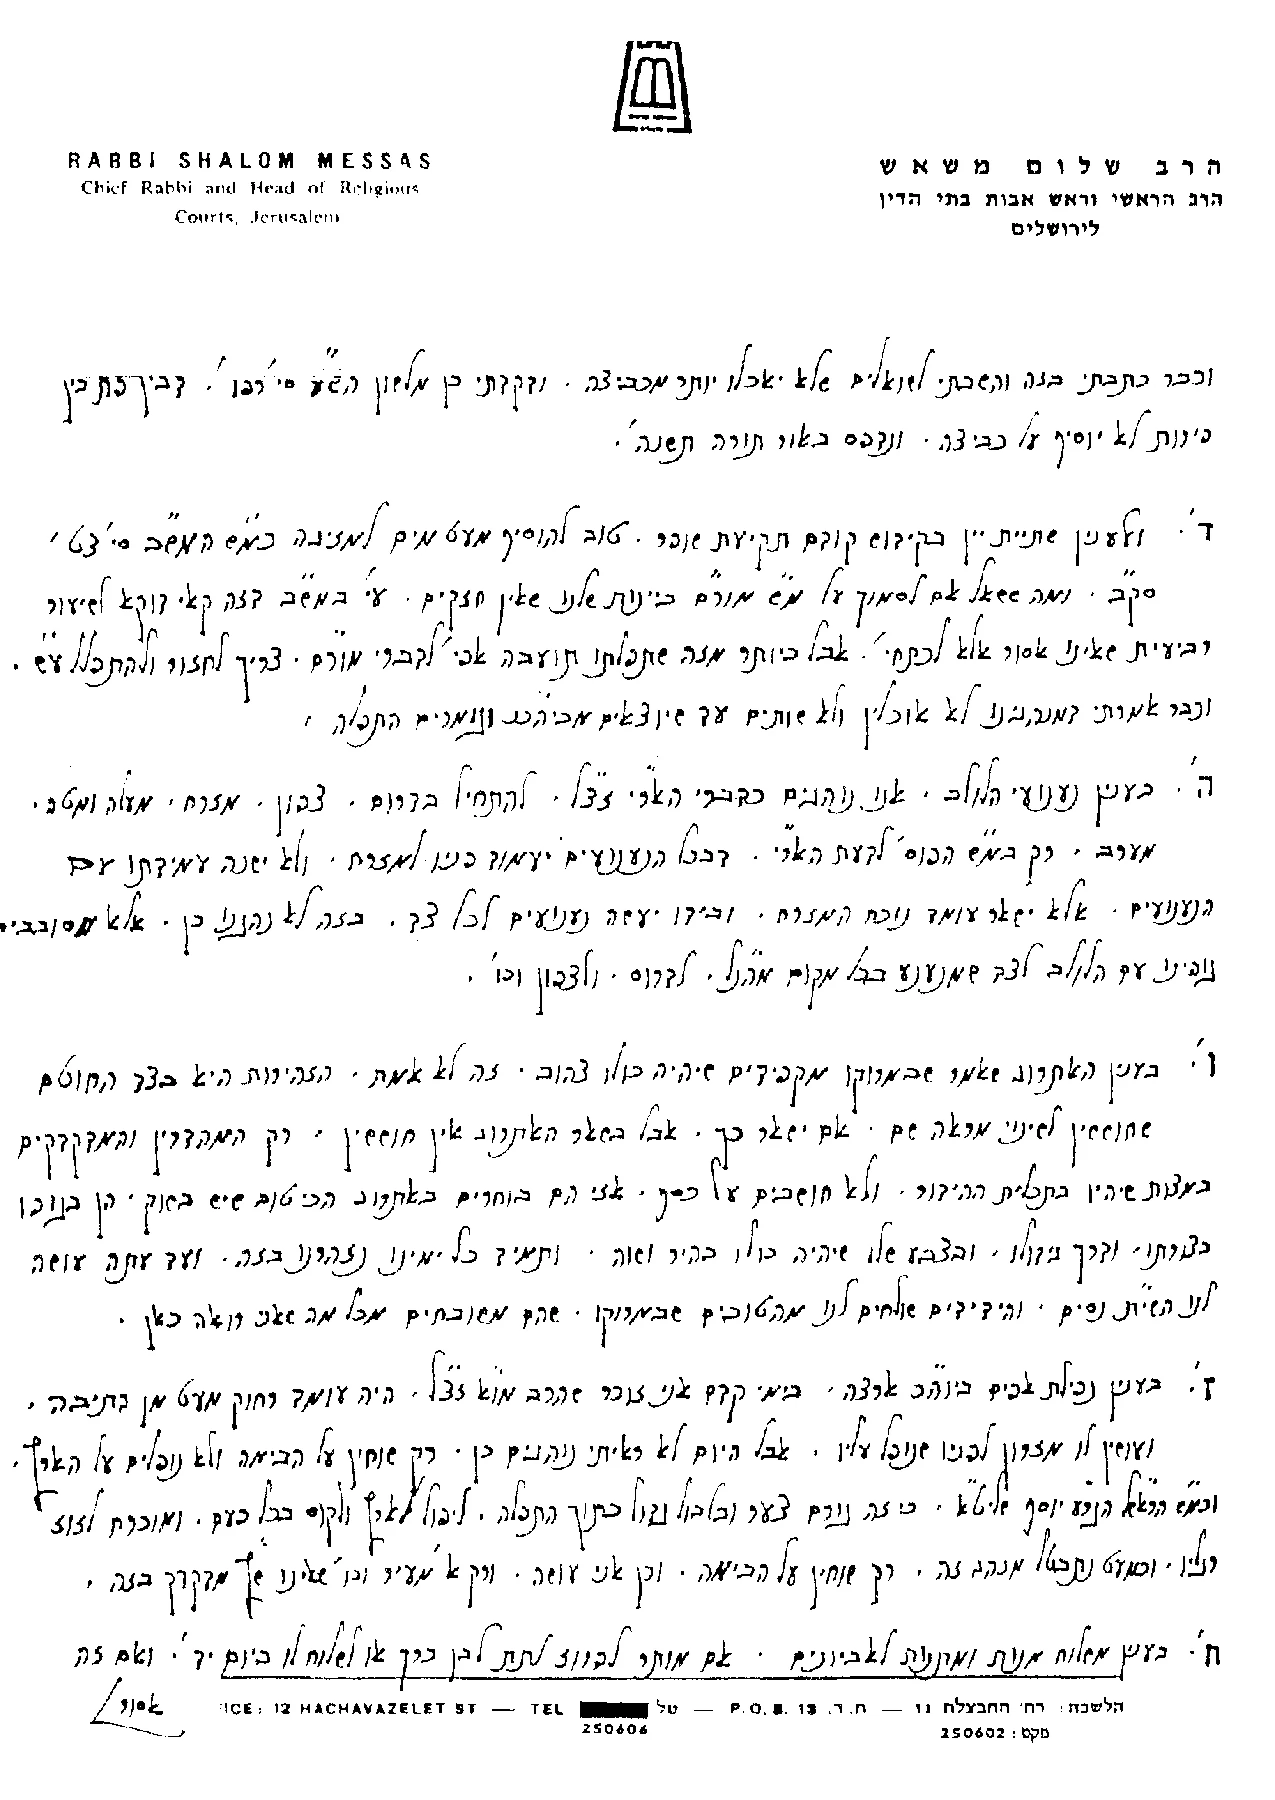 RABBI SHALOM MESSAS
Chief Rabbi and Head of Religious
Courts, Jerusalem
הרב שלום משאש
הרב הראשי וראש אבות בתי הדין
לירושלים
וכבר כתבתי בזה והשבתי לשואלים שלא יאכלו יותר מכביצה. ודקדתי כן מלשון הש"ע סי'
פירות לא יוסיף על כביצה. ונדפס באור תורה תשנה'.
ד'. ולענין שתיית יין בקידוש קודם תקיעת שופר. טוב להוסיף מעט מים למזיגה כמ"ש המש"ב סי' צט'
סק"ב. ומה ששאל אם לסמוך על מ"ש מור"ם ביינות שלנו שאין חזקים. עי' במש"ב דזה קאי דוקא לשיעור
רביעית שאינו אסור אלא לכתחי'. אבל ביותר מזה שתפלתו תועבה אפי' לדברי מור"ם. צריך לחזור ולהתפלל ע"ש.
וכבר אמרתי דמנהגינו לא אוכלין ולא שותים עד שיוצאים מביהכ"נ וגומרים התפלה.
ה'. בענין נענועי הלולב. אנו נוהגים כדברי האר"י ז"צל. להתחיל בדרום. צפון. מזרח. מעלה ומטה.
מערב. רק במ"ש הפוס' לדעת האר"י. דבכל הנענועים יעמוד פניו למזרח. ולא ישנה עמידתו עם
הנענועים. אלא ישאר עומד נוכח המזרח. ובידו יעשה נענועים לכל צד. בזה לא נהגנו כן. אלא מסובבים
גופינו עם הלולב לצד שמנענע בכל מקום מהנ"ל. לדרום. ולצפון וכו'.
ו'. בענין האתרוג שאמר שבמרוקו מקפידים שיהיה כולו צהוב. זה לא אמת. הזהירות היא בצד החוטם
שחוששין לשינוי מראה שם. אם ישאר כך. אבל בשאר האתרוג אין חוששין. רק המהדרין והמדקדקים
במצות שיהיו בתכלית ההידור. ולא חושבים על כסף. אזי הם בוחרים באתרוג הכי טוב שיש בשוק. הן בגופו
בצורתו. ודרך גידולו. ובצבע שלו שיהיה כולו בהיר ושוה. ותמיד כל ימינו נזהרנו בזה. ועד עתה עושה
לנו השי"ת נסים. והידידים שולחים לנו מהטובים שבמרוקו. שהם משובחים מכל מה שאני רואה כאן.
ז'. בענין נפילת אפים ביוה"כ ארצה. בימי קדם אני זוכר שהרב מו"א ז"צל. היה עומד רחוק מעט מן התיבה.
ועושין לו מזרון לפניו שנופל עליו. אבל היום לא ראיתי נוהגים כן. רק שוחין על הבימה ולא נופלים על הארץ.
וכמ"ש הרא"ל הגר"ע יוסף שליט"א. כי זה גורם צער ובלבול גדול בתוך התפלה. ליפול לארץ ולקום בכל פעם. ומוכרח לזוז
רגליו. וכמעט נתבטל מנהג זה. רק שוחין על הבימה. וכן אני עושה. ורק א' מעיר וכו' שאינו מדקדק בזה.
ח'. בענין משלוח מנות ומתנות לאביונים. אם מותר לכרוז לתת לבן כרך או לשלוח לו ביום יד'. ואם זה
אסור
ICE: 12 HACHAVAZELET ST — TEL טל — P.O.B. 13 ת.ד. — הלשכה: רח' החבצלת 11
250606
מקס: 250602